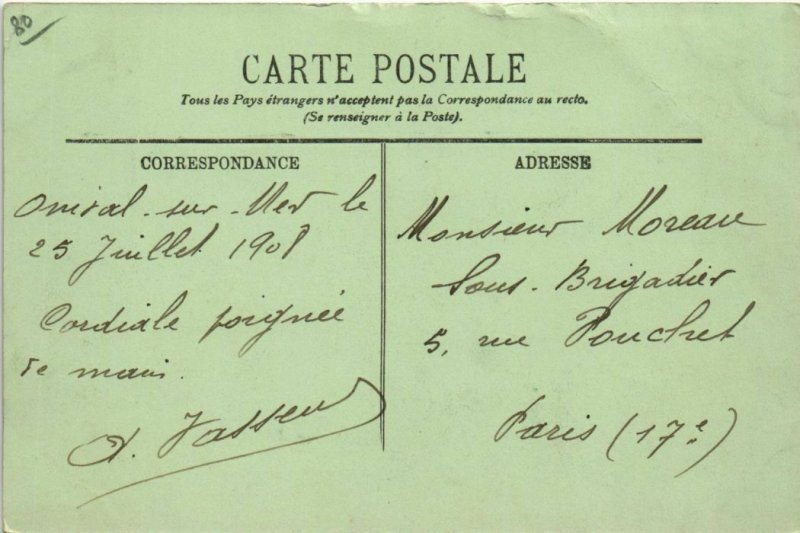 80
CARTE POSTALE
Tous les Pays étrangers n'acceptent pas la Correspondance au recto.
(Se renseigner à la Poste).
CORRESPONDANCE
Onival-sur-Mer le
25 Juillet 1908
Cordiale poignée
de main.
A. Vasseur
ADRESSE
Monsieur Moreau
Sous-Brigadier
5, rue Pouchet
Paris (17e)